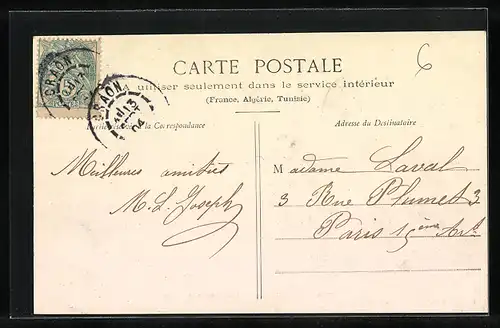 6
CARTE POSTALE
A utiliser seulement dans le service intérieur
(France, Algérie, Tunisie)
CRAON
CRAON
13
04
la Correspondance
Adresse du Destinataire
Meilleures amitiés
M. L. Joseph
Madame Laval
3 Rue Plumet 3
Paris 15ème Art